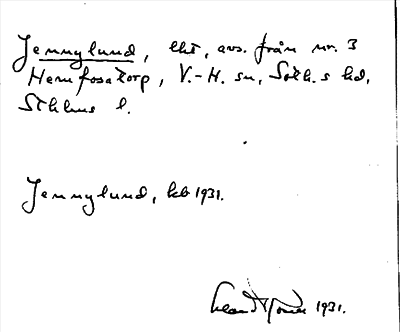 Jennylund, lht, avs. från nr. 3
Hemfosatorp, V.-H. sn, Soth.s hd,
Sthlms l.
Jennylund, kb 1931.
1931.